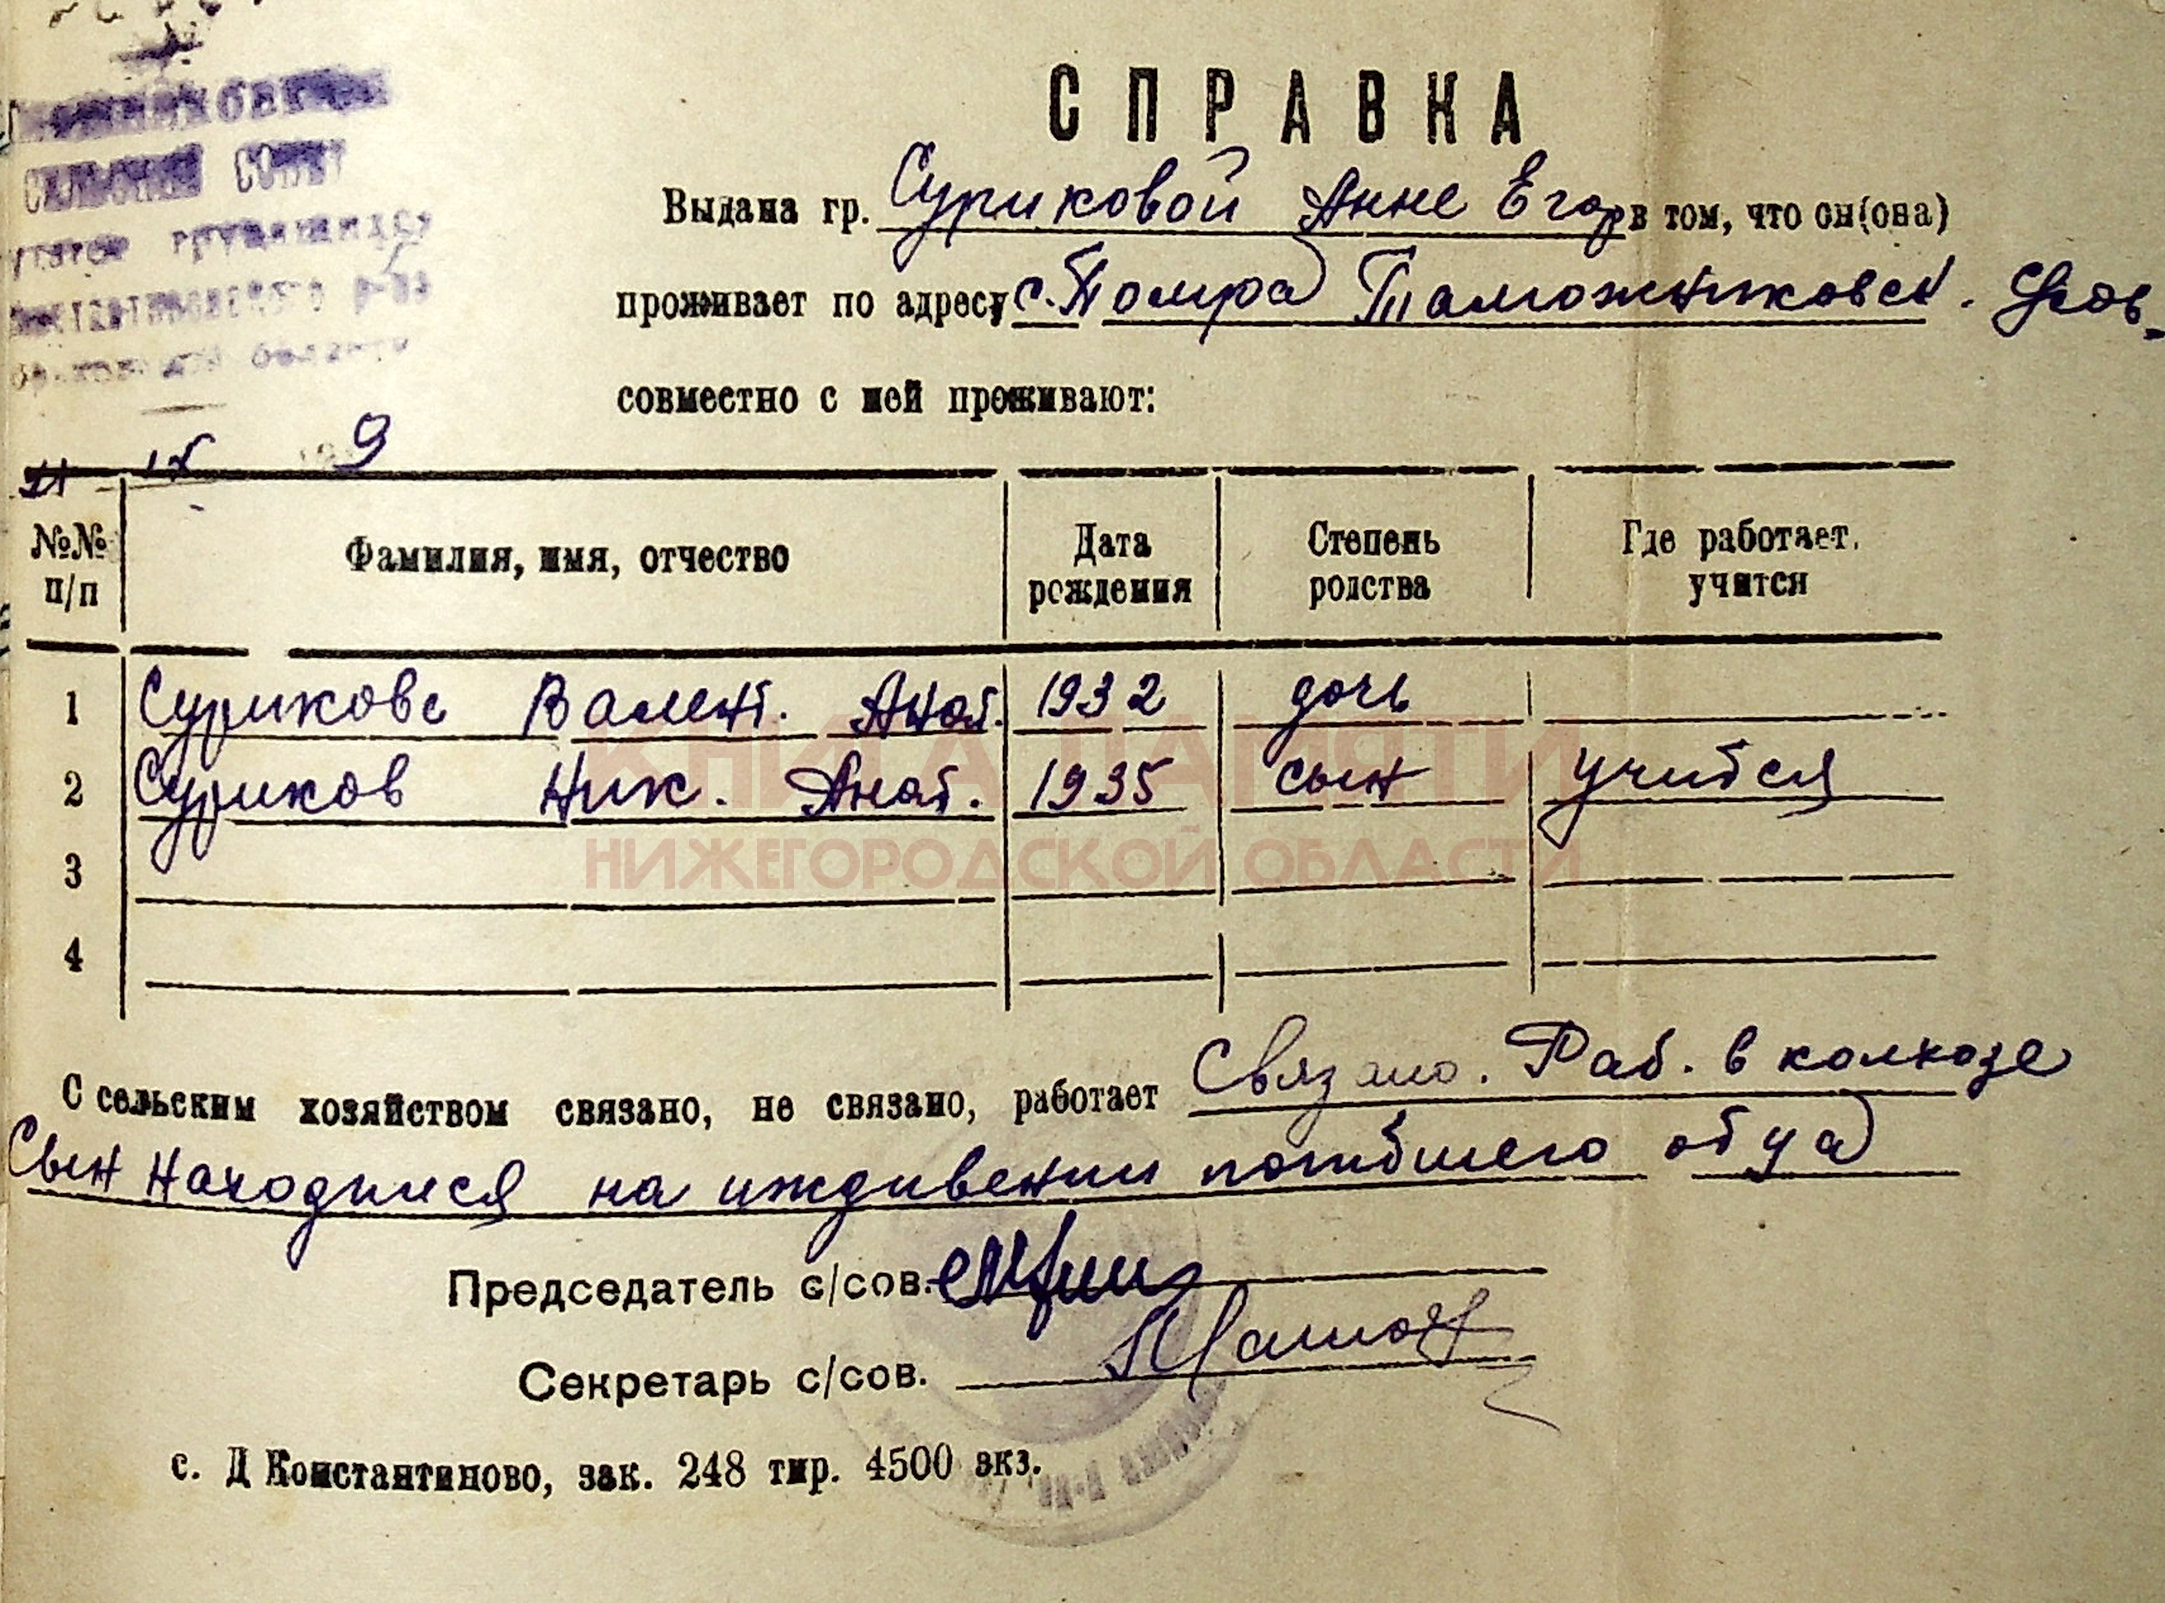 СПРАВКА
сельский совет
трудящихся
р-на
области
9
Выдана гр. Суриковой Анне Егор в том, что он(она)
проживает по адресу с. Помра Таможниковск.
совместно с ней проживают:
№№ п/п Фамилия, имя, отчество Дата рождения Степень родства Где работает, учится
1 Сурикова Валент. Анат. 1932 дочь
2 Суриков Ник. Анат. 1935 сын учится
3
4
КНИГА ПАМЯТИ
НИЖЕГОРОДСКОЙ ОБЛАСТИ
С сельским хозяйством связано, не связано, работает Связано. Раб. в колхозе
Сын находился на иждивении погибшего отца
Председатель с/сов.
Секретарь с/сов.
с. Д Константиново, зак. 248 тир. 4500 экз.